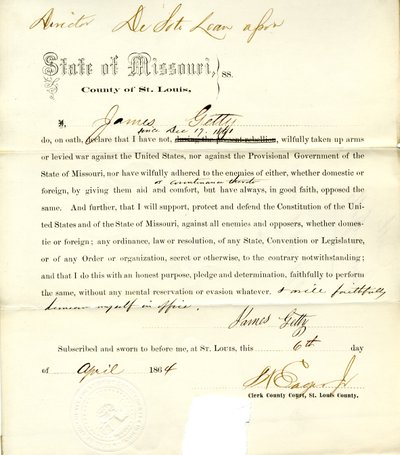 Director De Soto Loan assn
State of Missouri, ss.
County of St. Louis,
I, James Getty
since Dec 17. 1861
do, on oath, declare that I have not, during the present rebellion, wilfully taken up arms
or levied war against the United States, nor against the Provisional Government of the
State of Missouri, nor have wilfully adhered to the enemies of either, whether domestic or
or countenance thereto
foreign, by giving them aid and comfort, but have always, in good faith, opposed the
same. And further, that I will support, protect and defend the Constitution of the Uni-
ted States and of the State of Missouri, against all enemies and opposers, whether domes-
tic or foreign; any ordinance, law or resolution, of any State, Convention or Legislature,
or of any Order or organization, secret or otherwise, to the contrary notwithstanding;
and that I do this with an honest purpose, pledge and determination, faithfully to perform
the same, without any mental reservation or evasion whatever. I will faithfully
demean myself in office.
James Getty
Subscribed and sworn to before me, at St. Louis, this 6th day
of April 1864
Eager Jr
Clerk County Court, St. Louis County.